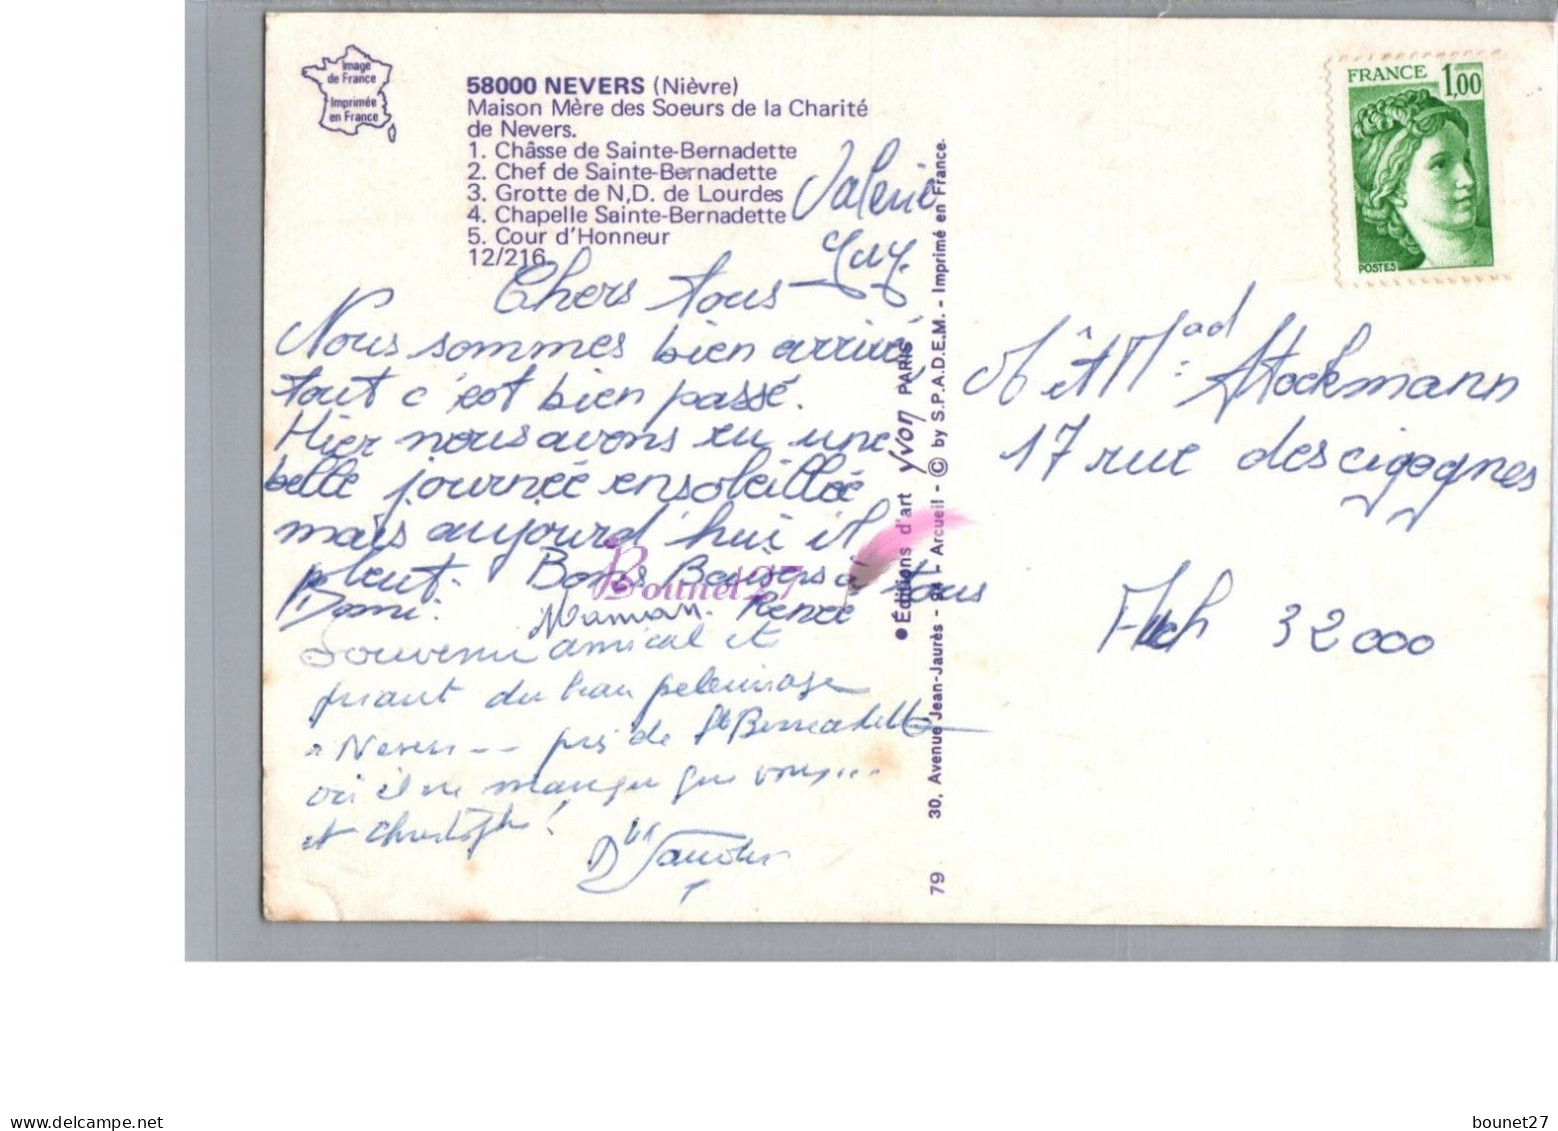 Image
de France
Imprimée
en France
58000 NEVERS (Nièvre)
Maison Mère des Soeurs de la Charité
de Nevers.
1. Châsse de Sainte-Bernadette
2. Chef de Sainte-Bernadette
3. Grotte de N,D. de Lourdes
4. Chapelle Sainte-Bernadette
5. Cour d'Honneur
12/216
Valérie
Guy.
Chers tous
Nous sommes bien arrivé,
tout c'est bien passé.
Hier nous avons eu une
belle journée ensoleillée
mais aujourd'hui il
pleut. Bons Baisers à tous
Domi. Maman. Renée
Souvenir amical et
priant du beau pelerinage
à Nevers -- près de Ste Bernadette
où il ne manque que vous...
et Christophe!
79 30, Avenue Jean-Jaurès - 94 - Arcueil - © by S.P.A.D.E.M. - Imprimé en France.
• Éditions d'art yvon PARIS
FRANCE 1,00
POSTES
M et Mad
Stockmann
17 rue des cigognes
Auch 32000
Bounet27
delcampe.net
bounet27